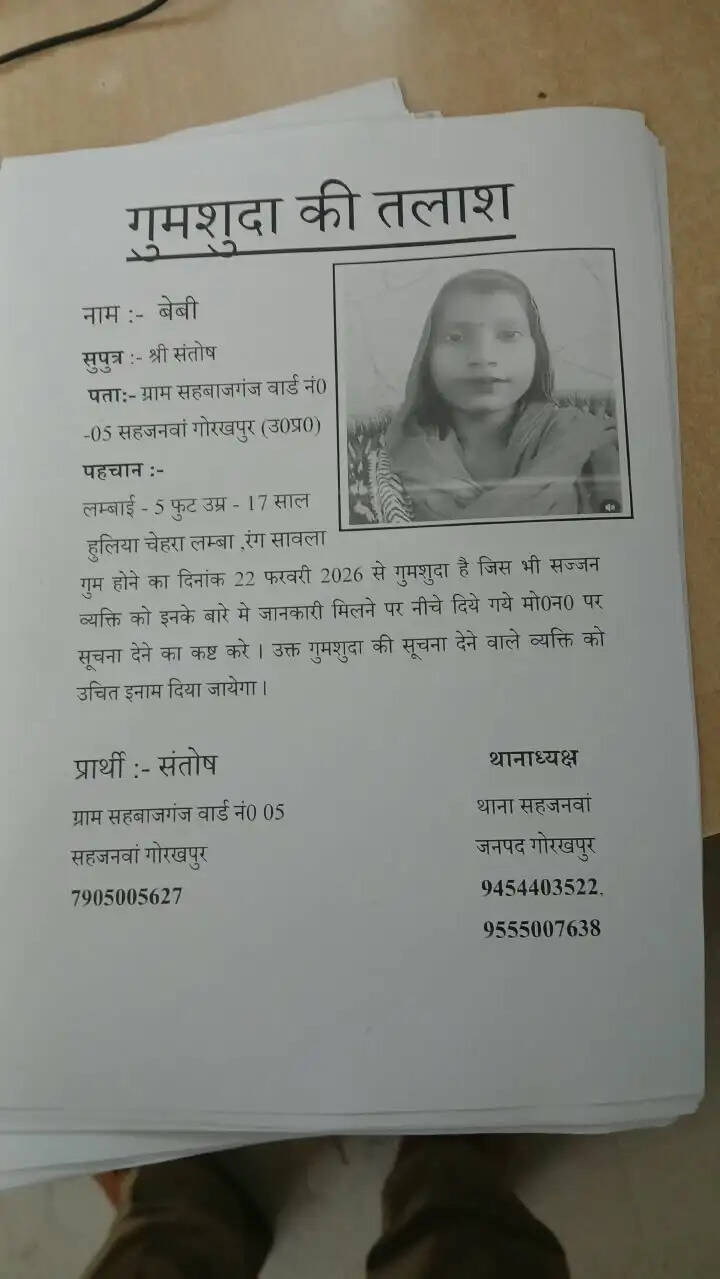 गुमशुदा की तलाश
नाम :- बेबी
सुपुत्र :- श्री संतोष
पता:- ग्राम सहबाजगंज वार्ड नं0
-05 सहजनवां गोरखपुर (उ0प्र0)
पहचान :-
लम्बाई - 5 फुट उम्र - 17 साल
हुलिया चेहरा लम्बा ,रंग सावला
गुम होने का दिनांक 22 फरवरी 2026 से गुमशुदा है जिस भी सज्जन
व्यक्ति को इनके बारे मे जानकारी मिलने पर नीचे दिये गये मो0न0 पर
सूचना देने का कष्ट करे । उक्त गुमशुदा की सूचना देने वाले व्यक्ति को
उचित इनाम दिया जायेगा ।
प्रार्थी :- संतोष
ग्राम सहबाजगंज वार्ड नं0 05
सहजनवां गोरखपुर
7905005627
थानाध्यक्ष
थाना सहजनवां
जनपद गोरखपुर
9454403522,
9555007638